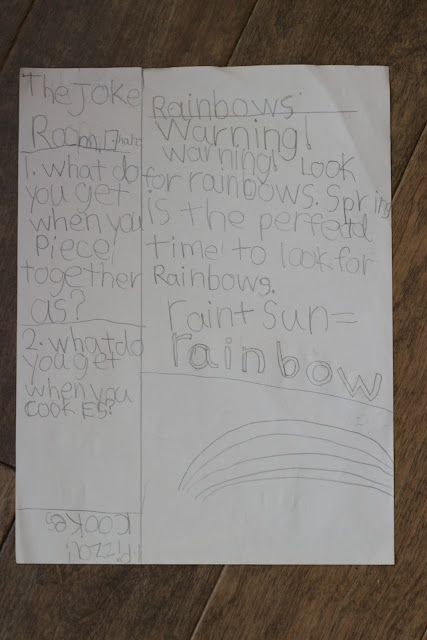 The Joke
Room
1. what do
you get
when you
Piece
together
as?
2. what do
you get
when you
COOKES?
Pizza!
COOKES
Rainbows
Warning!
warning! Look
for rainbows. Spring
is the perfect
time to look for
Rainbows.
rain + Sun =
rainbow